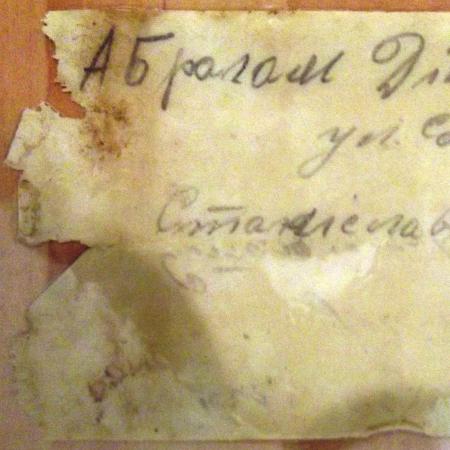 Абрагам Ді
ул. С
Станіслав